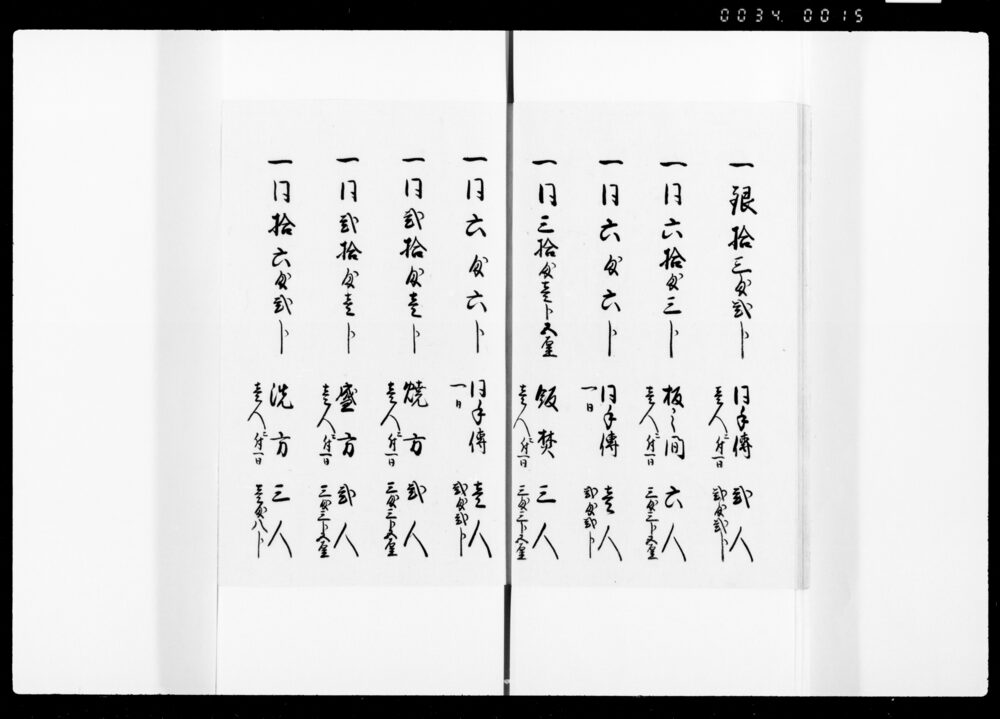 0034. 0015
一銀拾三匁弐分 同手傳 弐人
壱人ニ付一日 弐匁弐分
一同六拾匁三分 板之間 六人
壱人ニ付一日 三匁三分五厘
一同六匁六分 同手傳 壱人
一日 弐匁弐分
一同三拾匁壱分五厘 飯焚 三人
壱人ニ付一日 三匁三分五厘
一同六匁六分 同手傳 壱人
一日 弐匁弐分
一同弐拾匁壱分 焼方 弐人
壱人ニ付一日 三匁三分五厘
一同弐拾匁壱分 盛方 弐人
壱人ニ付一日 三匁三分五厘
一同拾六匁弐分 洗方 三人
壱人ニ付一日 壱匁八分